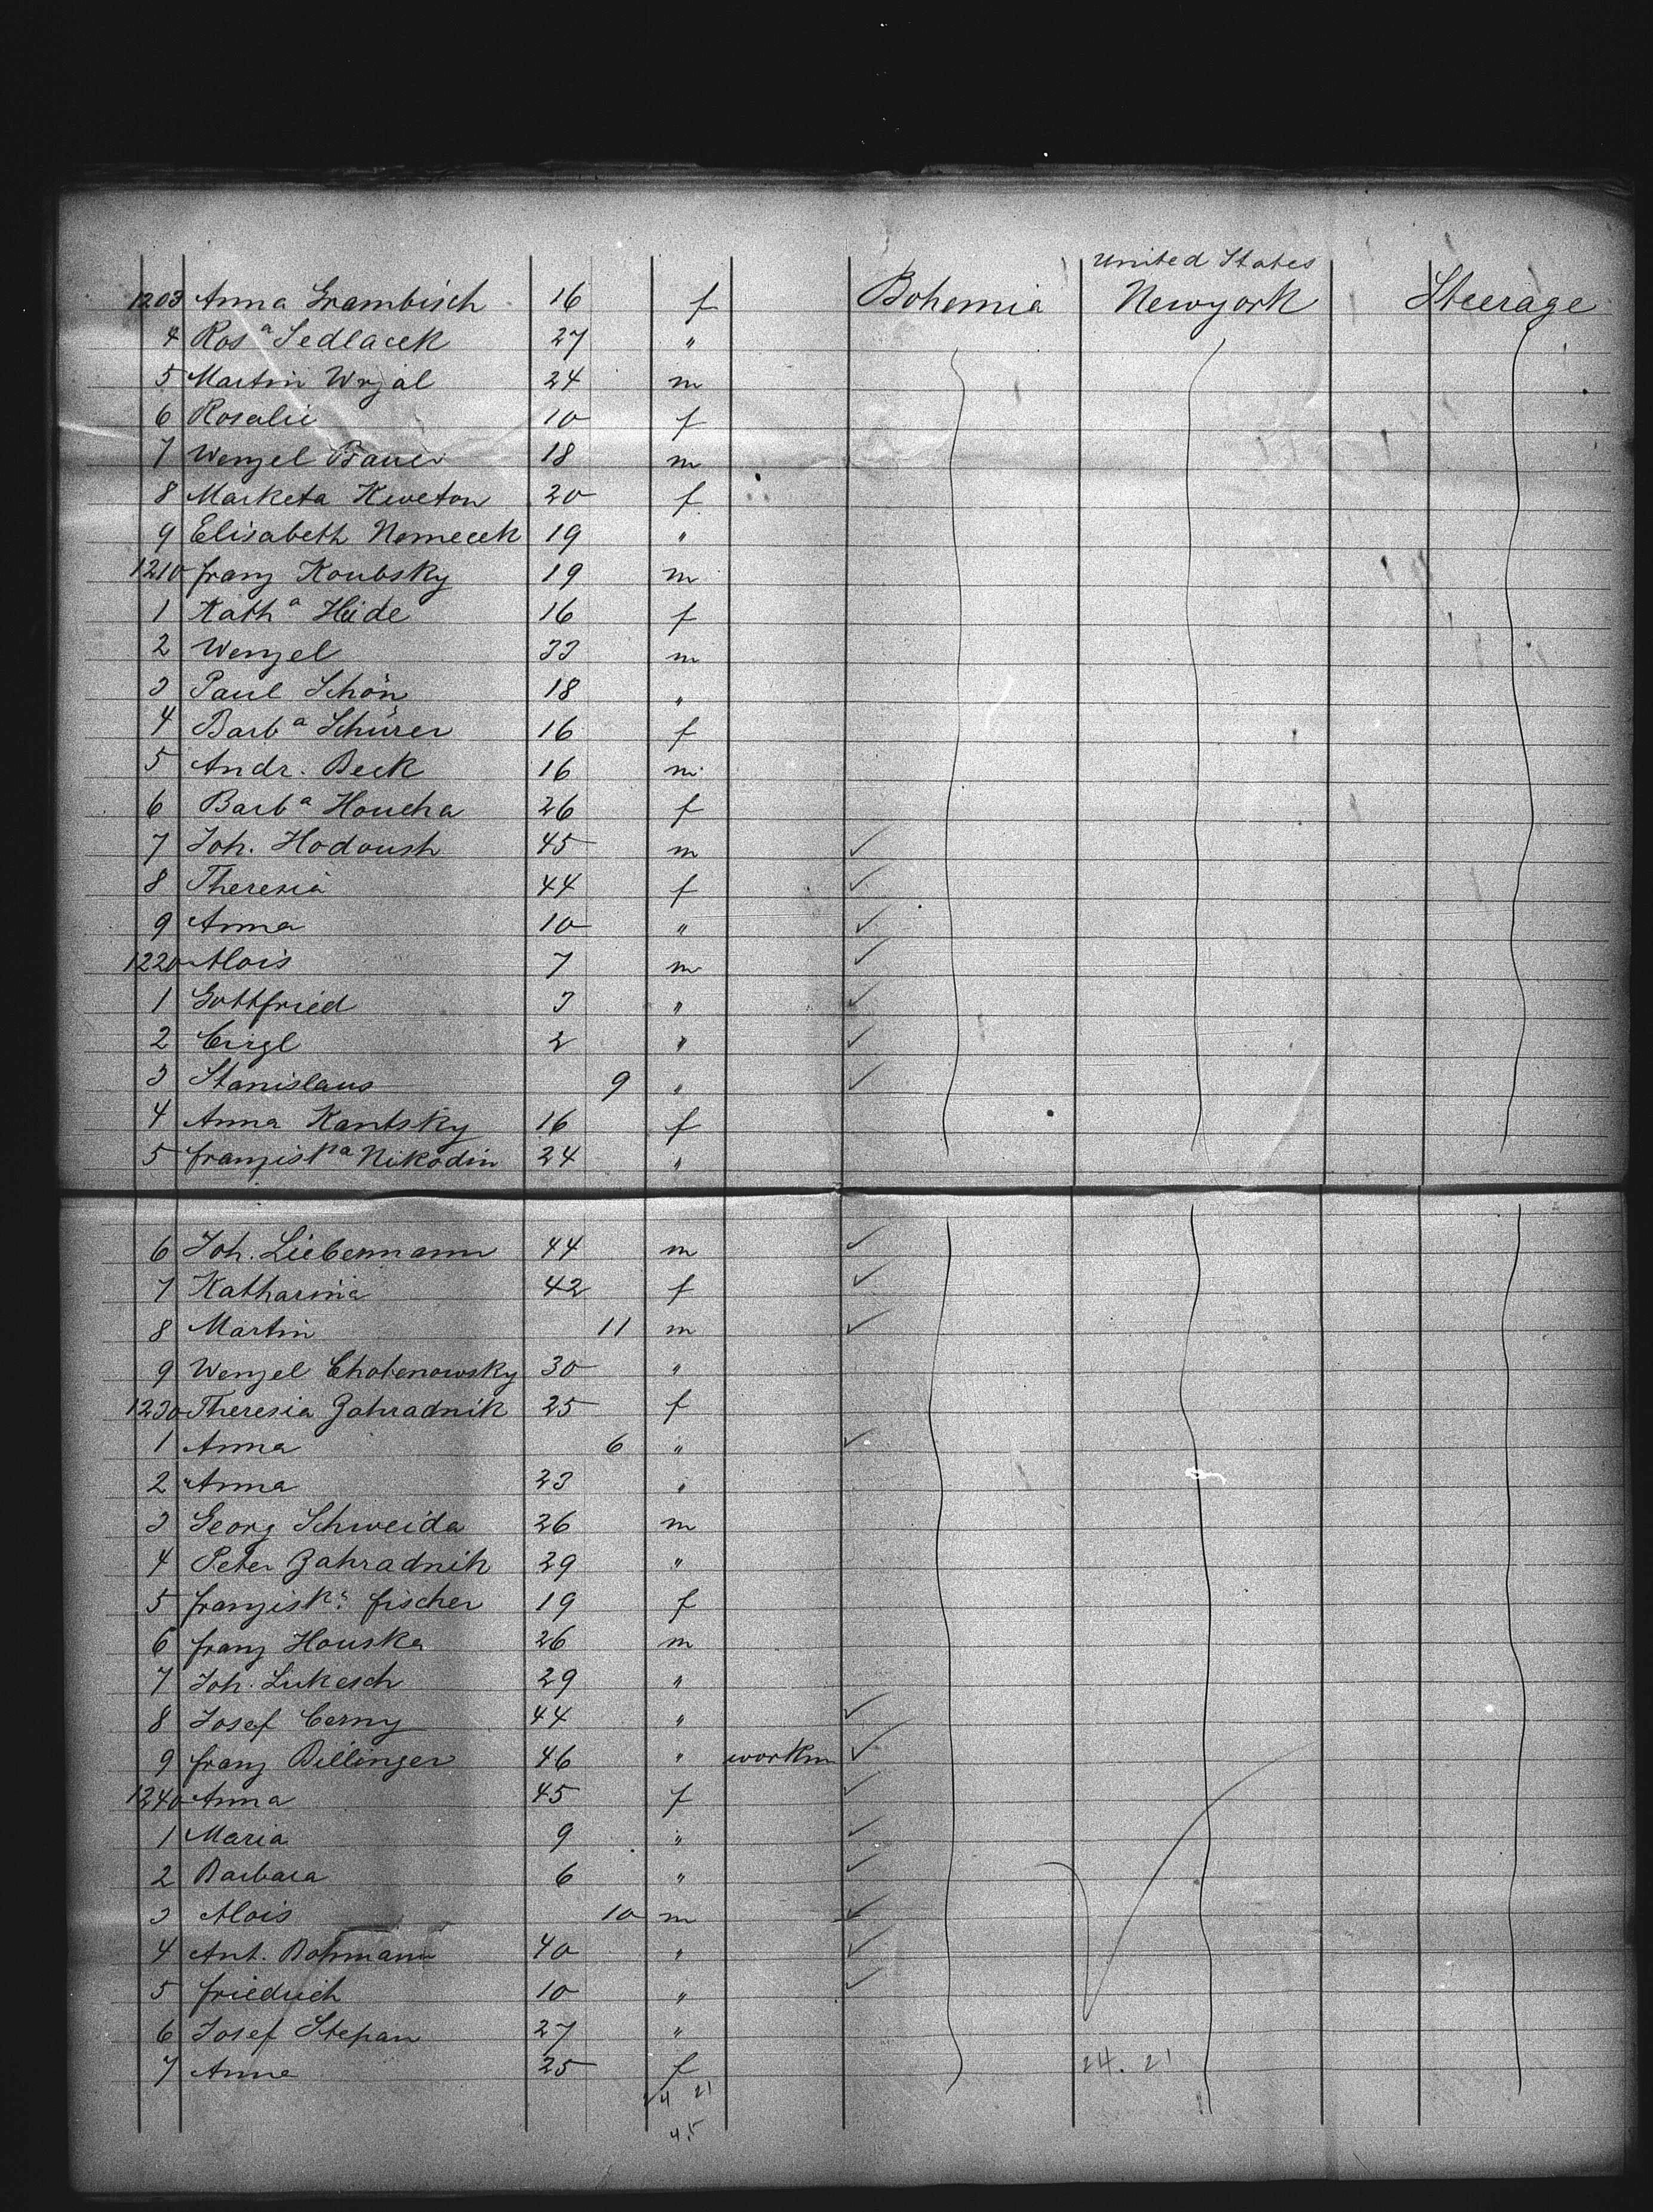 United States
1203 Anna Grambisch 16 f Bohemia Newyork Steerage
4 Rosa Sedlacek 27 "
5 Martin Wrzal 24 m
6 Rosalie 10 f
7 Wenzel Bauer 18 m
8 Marketa Kweton 20 f
9 Elisabeth Nemecek 19 "
1210 Franz Koubsky 19 m
1 Katha Heide 16 f
2 Wenzel 33 m
3 Paul Schön 18 "
4 Barba Schürer 16 f
5 Andr. Beck 16 m
6 Barba Houcha 26 f
7 Joh. Hodoush 45 m ✓
8 Theresia 44 f ✓
9 Anna 10 " ✓
1220 Alois 7 m ✓
1 Gottfried 3 " ✓
2 Cirgl 2 " ✓
3 Stanislaus 9 " ✓
4 Anna Kantsky 16 f
5 Franziska Nikodin 24 "
6 Joh. Liebermann 44 m ✓
7 Katharina 42 f ✓
8 Martin 11 m ✓
9 Wenzel Chotenowsky 30 "
1230 Theresia Zahradnik 25 f
1 Anna 6 " ✓
2 Anna 23 "
3 Georg Schweida 26 m
4 Peter Zahradnik 29 "
5 Franziska Fischer 19 f
6 Franz Houska 26 m
7 Joh. Lukesch 29 "
8 Josef Cerny 44 " ✓
9 Franz Dillinger 46 " workm ✓
1240 Anna 45 f ✓
1 Maria 9 " ✓
2 Barbara 6 " ✓
3 Alois 10 m ✓
4 Ant. Bohmann 40 " ✓
5 Friedrich 10 " ✓
6 Josef Stepan 27 "
7 Anna 25 f 24. 21
24 21
45